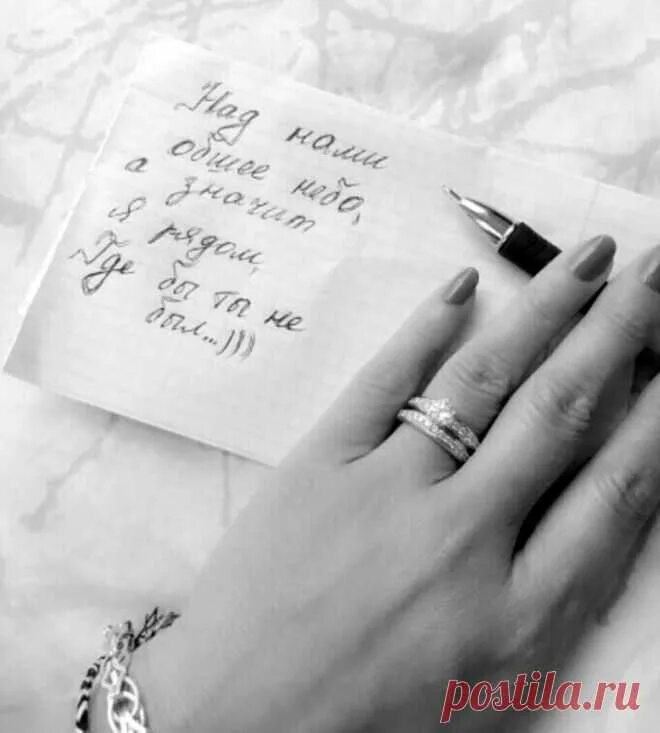 Над нами
общее небо,
а значит
я рядом,
Где бы ты не
был...)))
postila.ru